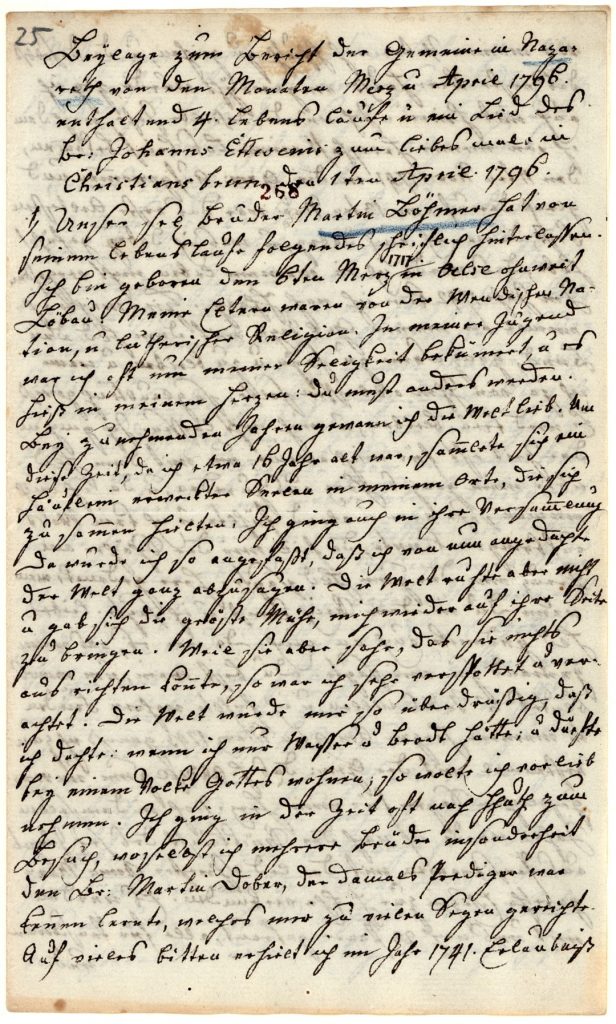 25
Beylage zum Bericht der Gemeine in Naza-
reth von den Monaten Merz u April 1796.
enthaltend 4. Lebens läufe u ein Lied des
Br: Johanns Ettweins zum liebes male in
Christiansbrunn den 1ten April. 1796.
258
1/ Unser sel. Bruder Martin Böhmer hat von
seinem lebenslaufe folgendes schriftlich hinterlassen.
1717
Ich bin geboren den 6ten Merz in Oelse ohnweit
Löbau. Meine Eltern waren von der Wendischen Na-
tion, u lutherischer Religion. In meiner Jugend
war ich oft um meiner Seligkeit bekümert, u es
hieß in meinem Herzen: du must anders werden.
Bey zunehmenden Jahren gewann ich die Welt lieb. Um
diese Zeit, da ich etwa 16 Jahr alt war, samlete sich ein
häuflein erweckter Seelen in meinem Orte, die sich
zusammen hielten. Ich ging auch in ihre Versamlung
da wurde ich so angefaßt, daß ich von nun an gedachte
der Welt ganz abzusagen. Die Welt ruhte aber nicht
u gab sich die größte Mühe, mich wieder auf ihre Seite
zu bringen. Weil sie aber sahe, das sie nichts
ausrichten konnte, so war ich sehr verspottet u ver-
achtet. Die Welt wurde mir so überdrüßig, daß
ich dachte: wenn ich nur Wasser u brodt hätte, u dürfte
bey einem Volke Gottes wohnen, so wolte ich vorlieb
nehmen. Ich ging in der Zeit oft nach Hhuth zum
Besuch, woselbst ich mehrere Brüder insonderheit
den Br: Martin Dober, der damals Prediger war
kennen lernte, welches mir zu vielen Segen gereichte.
Auf vieles bitten erhielt ich im Jahr 1741. Erlaubniß